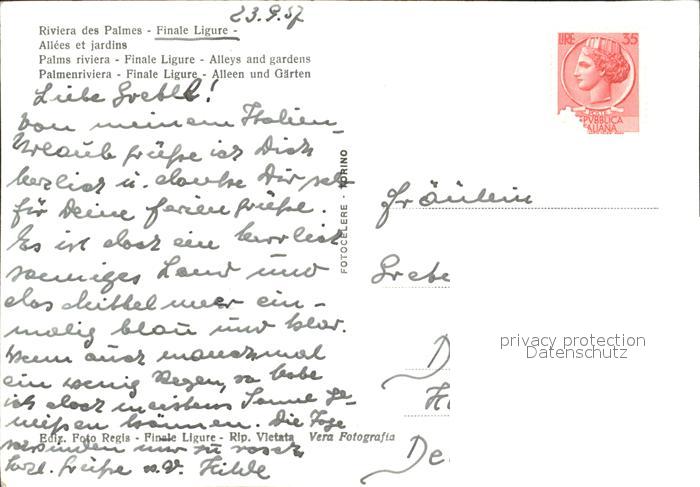 23.9.57
Riviera des Palmes - Finale Ligure -
Allées et jardins
Palms riviera - Finale Ligure - Alleys and gardens
Palmenriviera - Finale Ligure - Alleen und Gärten
LIRE 35
POSTE
EPVBBLICA
ALIANA
Liebe Gretel!
Von meinem Italien-
Urlaub grüße ich Dich
herzlich u. danke Dir sehr
für Deine Feriengrüße.
Es ist doch ein herrlich
sonniges Land und
das Mittelmeer ein-
malig blau und klar.
Wenn auch manchmal
ein wenig Regen, so habe
ich doch meistens Sonne ge-
nießen können. Die Tage
schwinden nur zu rasch,
Herzl. Grüße v. Hilde
FOTOCELERE - TORINO
Fräulein
Grete
D
H
De
privacy protection
Datenschutz
Ediz. Foto Regis - Finale Ligure - Rip. Vietata Vera Fotografia